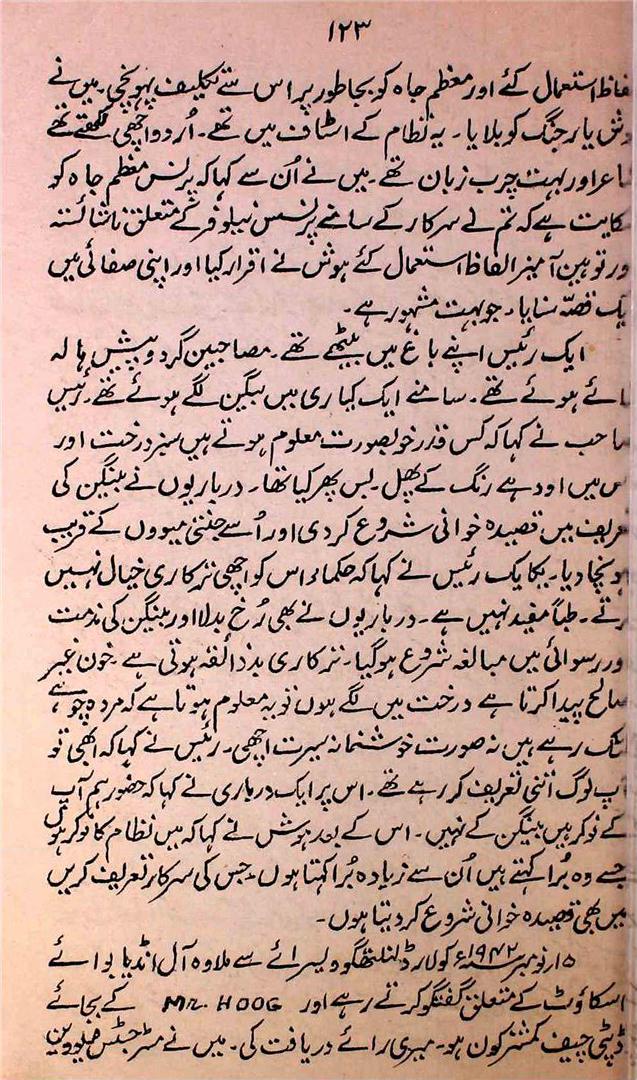 ۱۲۳
فاظ استعمال کئے اور معظم جاہ کو بجا طور پر اس سے تکلیف پہونچی۔ میں نے
وش یار جنگ کو بلایا۔ یہ نظام کے اسٹاف میں تھے۔ اُردو اچھی لکھتے تھے
اعر اور بہت چرب زبان تھے۔ میں نے اُن سے کہا کہ پرنس معظم جاہ کو
کایت ہے کہ تم نے سرکار کے سامنے پرنسس نیلوفر کے متعلق ناشائستہ
ور توہین آمیز الفاظ استعمال کئے ہوش نے اقرار کیا اور اپنی صفائی میں
یک قصّہ سنایا۔ جو بہت مشہور ہے۔
ایک رئیس اپنے باغ میں بیٹھے تھے۔ مصاحبین گرد و پیش ہالہ
ائے ہوئے تھے۔ سامنے ایک کیاری میں بیگن لگے ہوئے تھے۔ رئیس
احب نے کہا کہ کس قدر خوبصورت معلوم ہوتے ہیں سبز درخت اور
س میں اودے رنگ کے پھل۔ بس پھر کیا تھا۔ درباریوں نے بینگن کی
عریف میں قصیدہ خوانی شروع کر دی اور اُسے جنتی میووں کے قریب
ہونچا دیا۔ یکایک رئیس نے کہا کہ حکماء اس کو اچھی ترکاری خیال نہیں
رتے۔ طباً مفید نہیں ہے۔ درباریوں نے بھی رُخ بدلا اور بینگن کی مذمت
ور رسوائی میں مبالغہ شروع ہو گیا۔ ترکاری بدذائقہ ہوتی ہے۔ خون غیر
صالح پیدا کرتا ہے درخت میں لگے ہوں تو یہ معلوم ہوتا ہے کہ مردہ چوہے
لٹک رہے ہیں نہ صورت خوشنما نہ سیرت اچھی۔ رئیس نے کہا کہ ابھی تو
آپ لوگ اتنی تعریف کر رہے تھے۔ اس پر ایک درباری نے کہا کہ حضور ہم آپ
کے نوکر ہیں بینگن کے نہیں۔ اس کے بعد ہوش نے کہا کہ میں نظام کا نوکر ہوں
جسے وہ بُرا کہتے ہیں اُن سے زیادہ بُرا کہتا ہوں۔ جس کی سرکار تعریف کریں
میں بھی قصیدہ خوانی شروع کر دیتا ہوں۔
۱۵ر نومبر سنہ ۱۹۴۲ء کو لارڈ لنلتھگو ویسرائے سے ملا وہ آل انڈیا بوائے
اسکاؤٹ کے متعلق گفتگو کرتے رہے اور Mr. HOOG کے بجائے
ڈپٹی چیف کمشنر کون ہو۔ میری رائے دریافت کی۔ میں نے مسٹر جسٹس